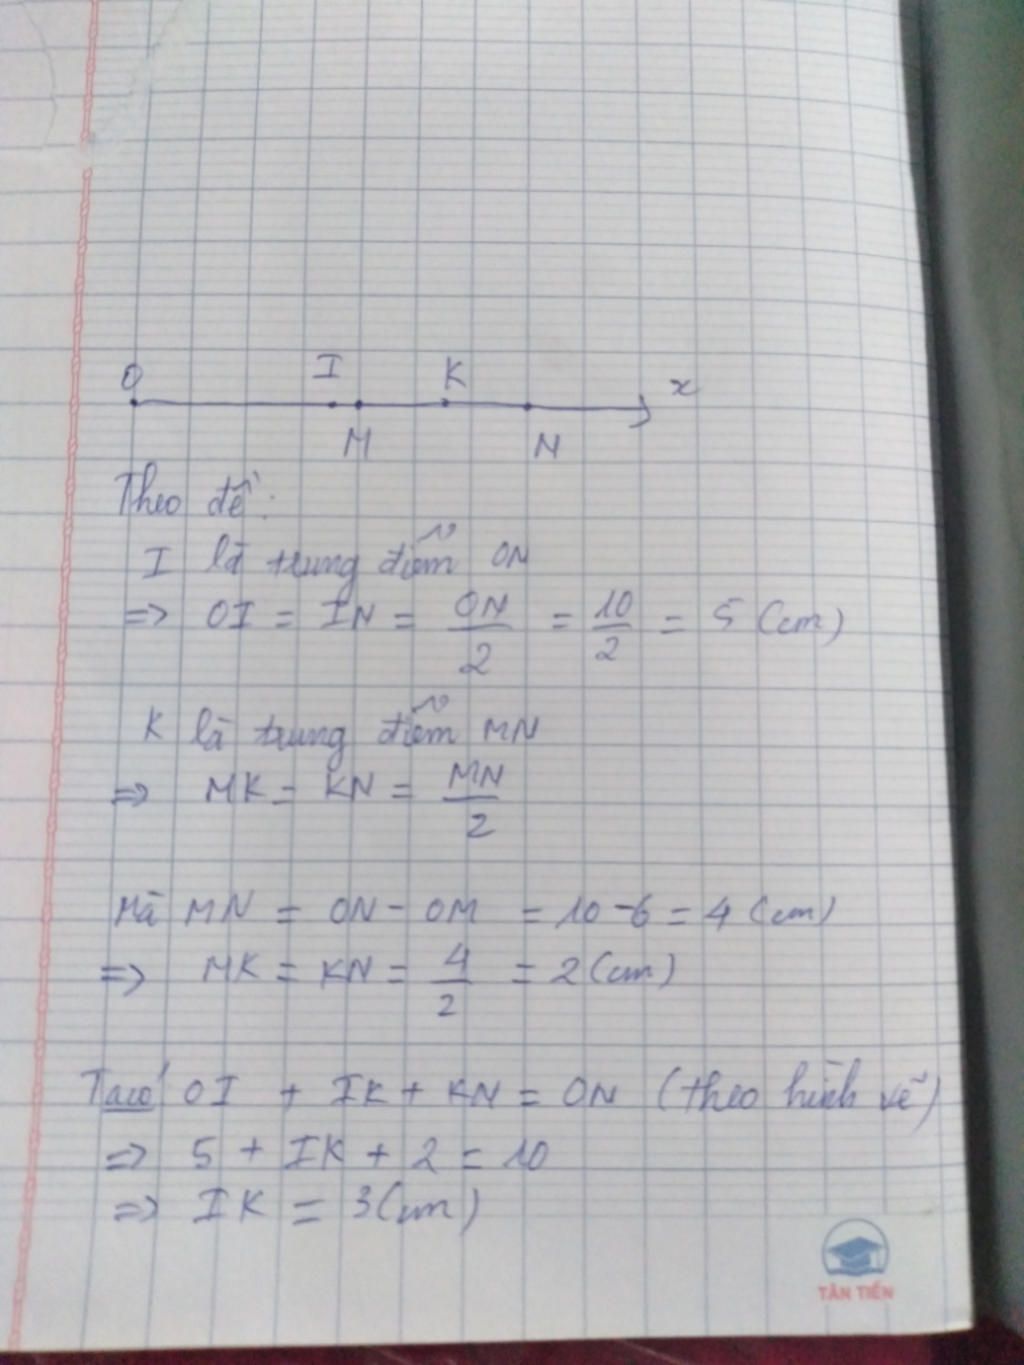 O I K x
M N
Theo đề:
I là trung điểm ON
=> OI = IN = ON/2 = 10/2 = 5 (cm)
K là trung điểm MN
=> MK = KN = MN/2
Mà MN = ON - OM = 10 - 6 = 4 (cm)
=> MK = KN = 4/2 = 2 (cm)
Ta có OI + IK + KN = ON (theo hình vẽ)
=> 5 + IK + 2 = 10
=> IK = 3 (cm)
TÂN TIẾN